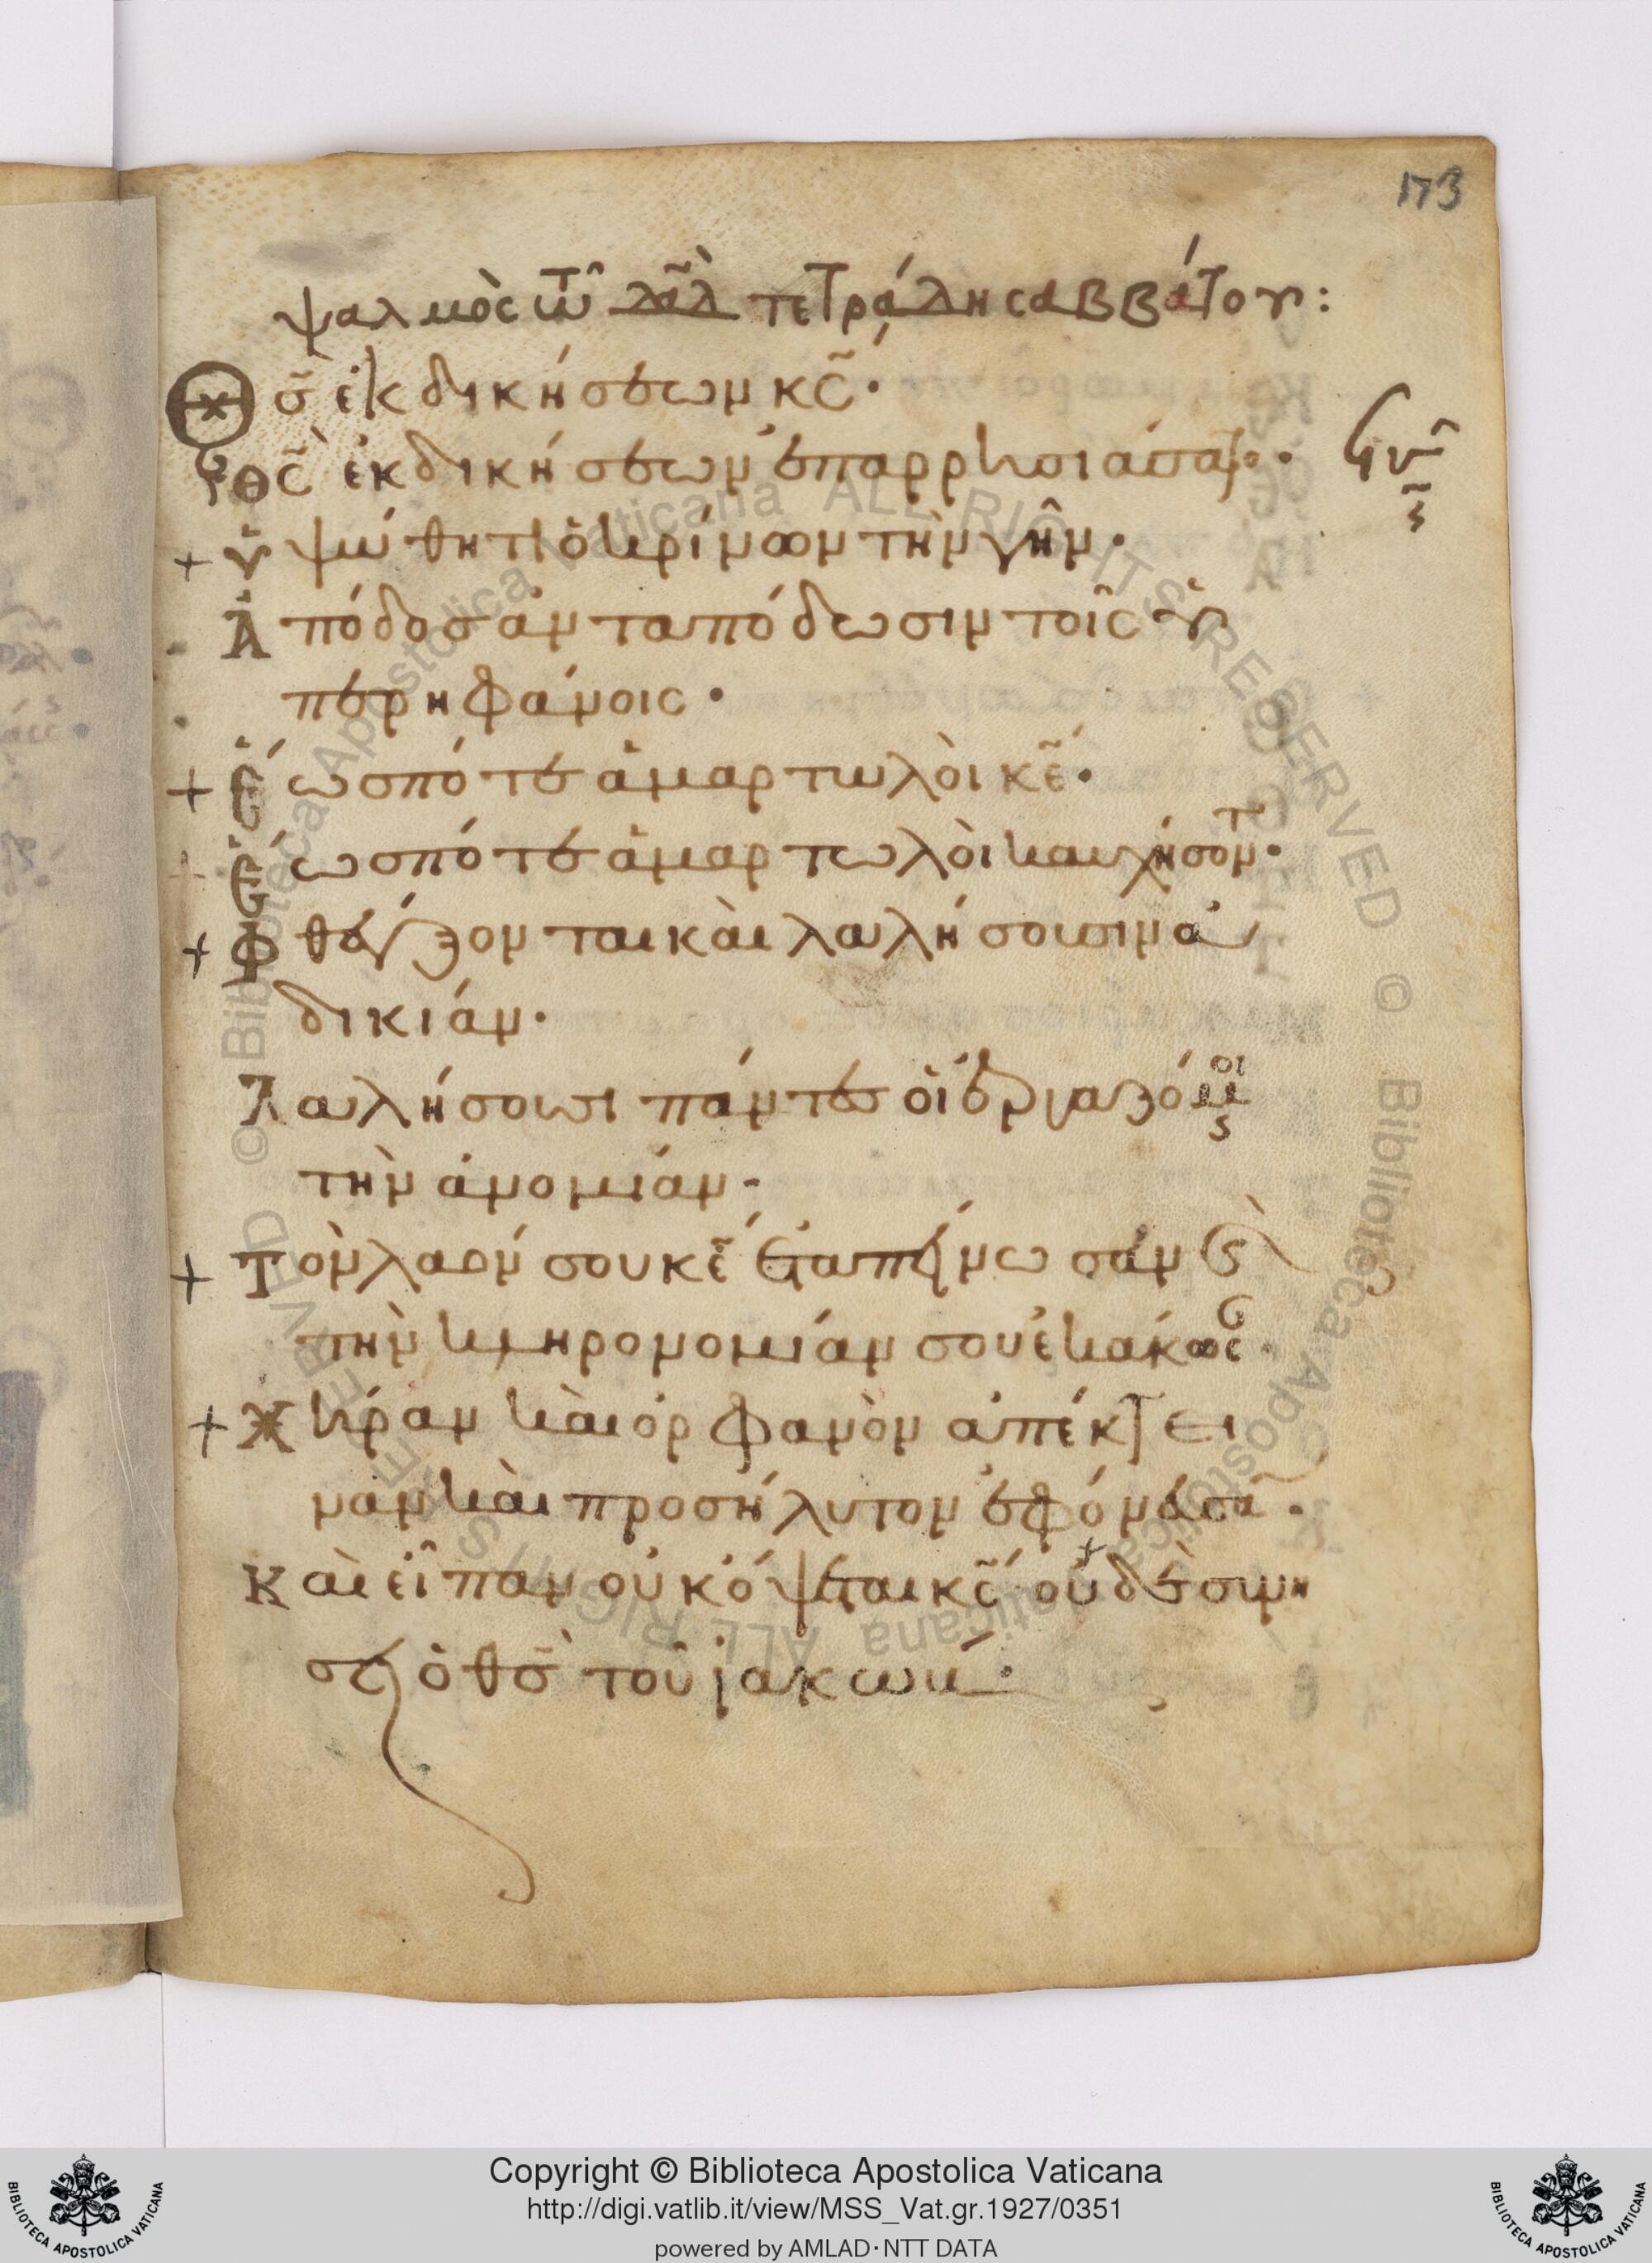 173
ψαλμὸς τῶ δᾱδ τετράδη σαββάτου:
Θς ἐκδικήσεων κς·
θς ἐκδικήσεων ἐπαρρησιάσατο·
+ ὑψώθητι ὁ κρίνων τὴν γῆν·
Ἀπόδος ἀνταπόδωσιν τοῖς ὑ
περηφάνοις·
+ Ἕως πότε ἁμαρτωλοὶ κε·
Ἕως πότε ἁμαρτωλοὶ καυχήσονται·
+ Φθέγξονται καὶ λαλήσουσιν ἀ
δικίαν·
Λαλήσουσι πάντες οἱ ἐργαζόμενοι
τὴν ἀνομίαν·
+ Τὸν λαόν σου κε ἐταπείνωσαν καὶ
τὴν κληρονομίαν σου ἐκάκωσαν·
+ Χήραν καὶ ὀρφανὸν ἀπέκτει
ναν καὶ προσήλυτον ἐφόνευσαν·
Καὶ εἶπαν οὐκ ὄψεται κς· οὐδὲ συνή
σει ὁ θς τοῦ ἰακώβ·
Copyright © Biblioteca Apostolica Vaticana
http://digi.vatlib.it/view/MSS_Vat.gr.1927/0351
powered by AMLAD·NTT DATA
BIBLIOTECA APOSTOLICA VATICANA
BIBLIOTECA APOSTOLICA VATICANA
© Biblioteca Apostolica Vaticana ALL RIGHTS RESERVED
© Biblioteca Apostolica Vaticana ALL RIGHTS RESERVED